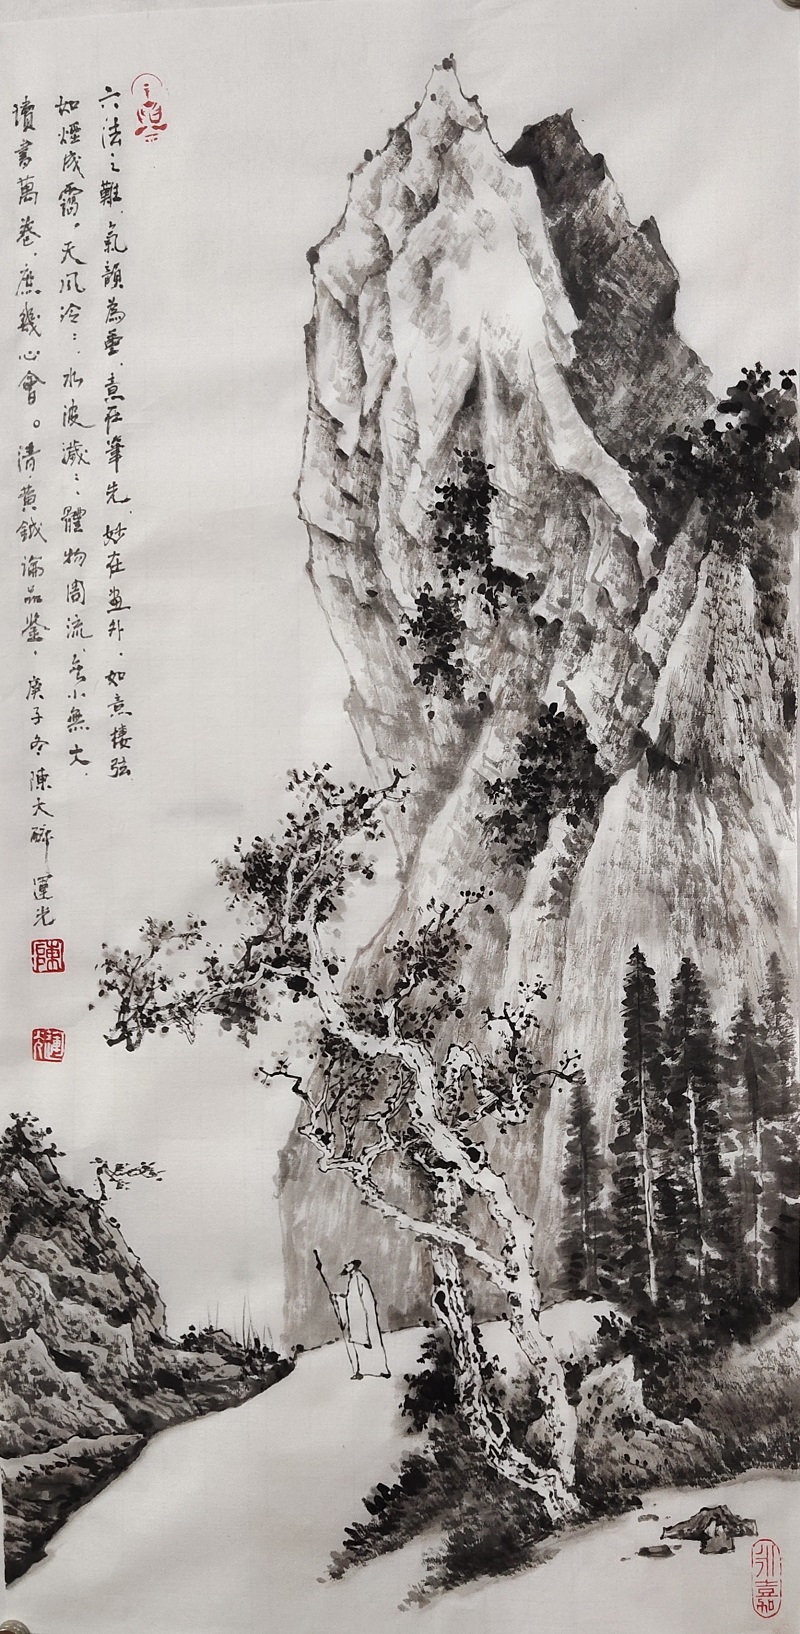 六法之難、氣韻為重、意在筆先、妙在畫外、如意棲弦
如煙成靄。天風泠〻、水波濊〻、體物周流、無小無大、
讀書萬卷、庶幾心會。清·黃鉞論品鑒、庚子冬陳大醉運光
陳
運光
永嘉